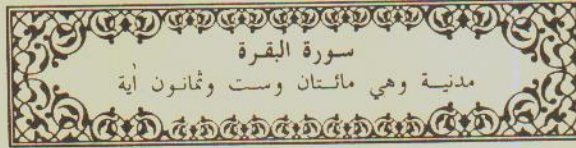 سورة البقرة
مدنية وهي مائتان وست وثمانون أية